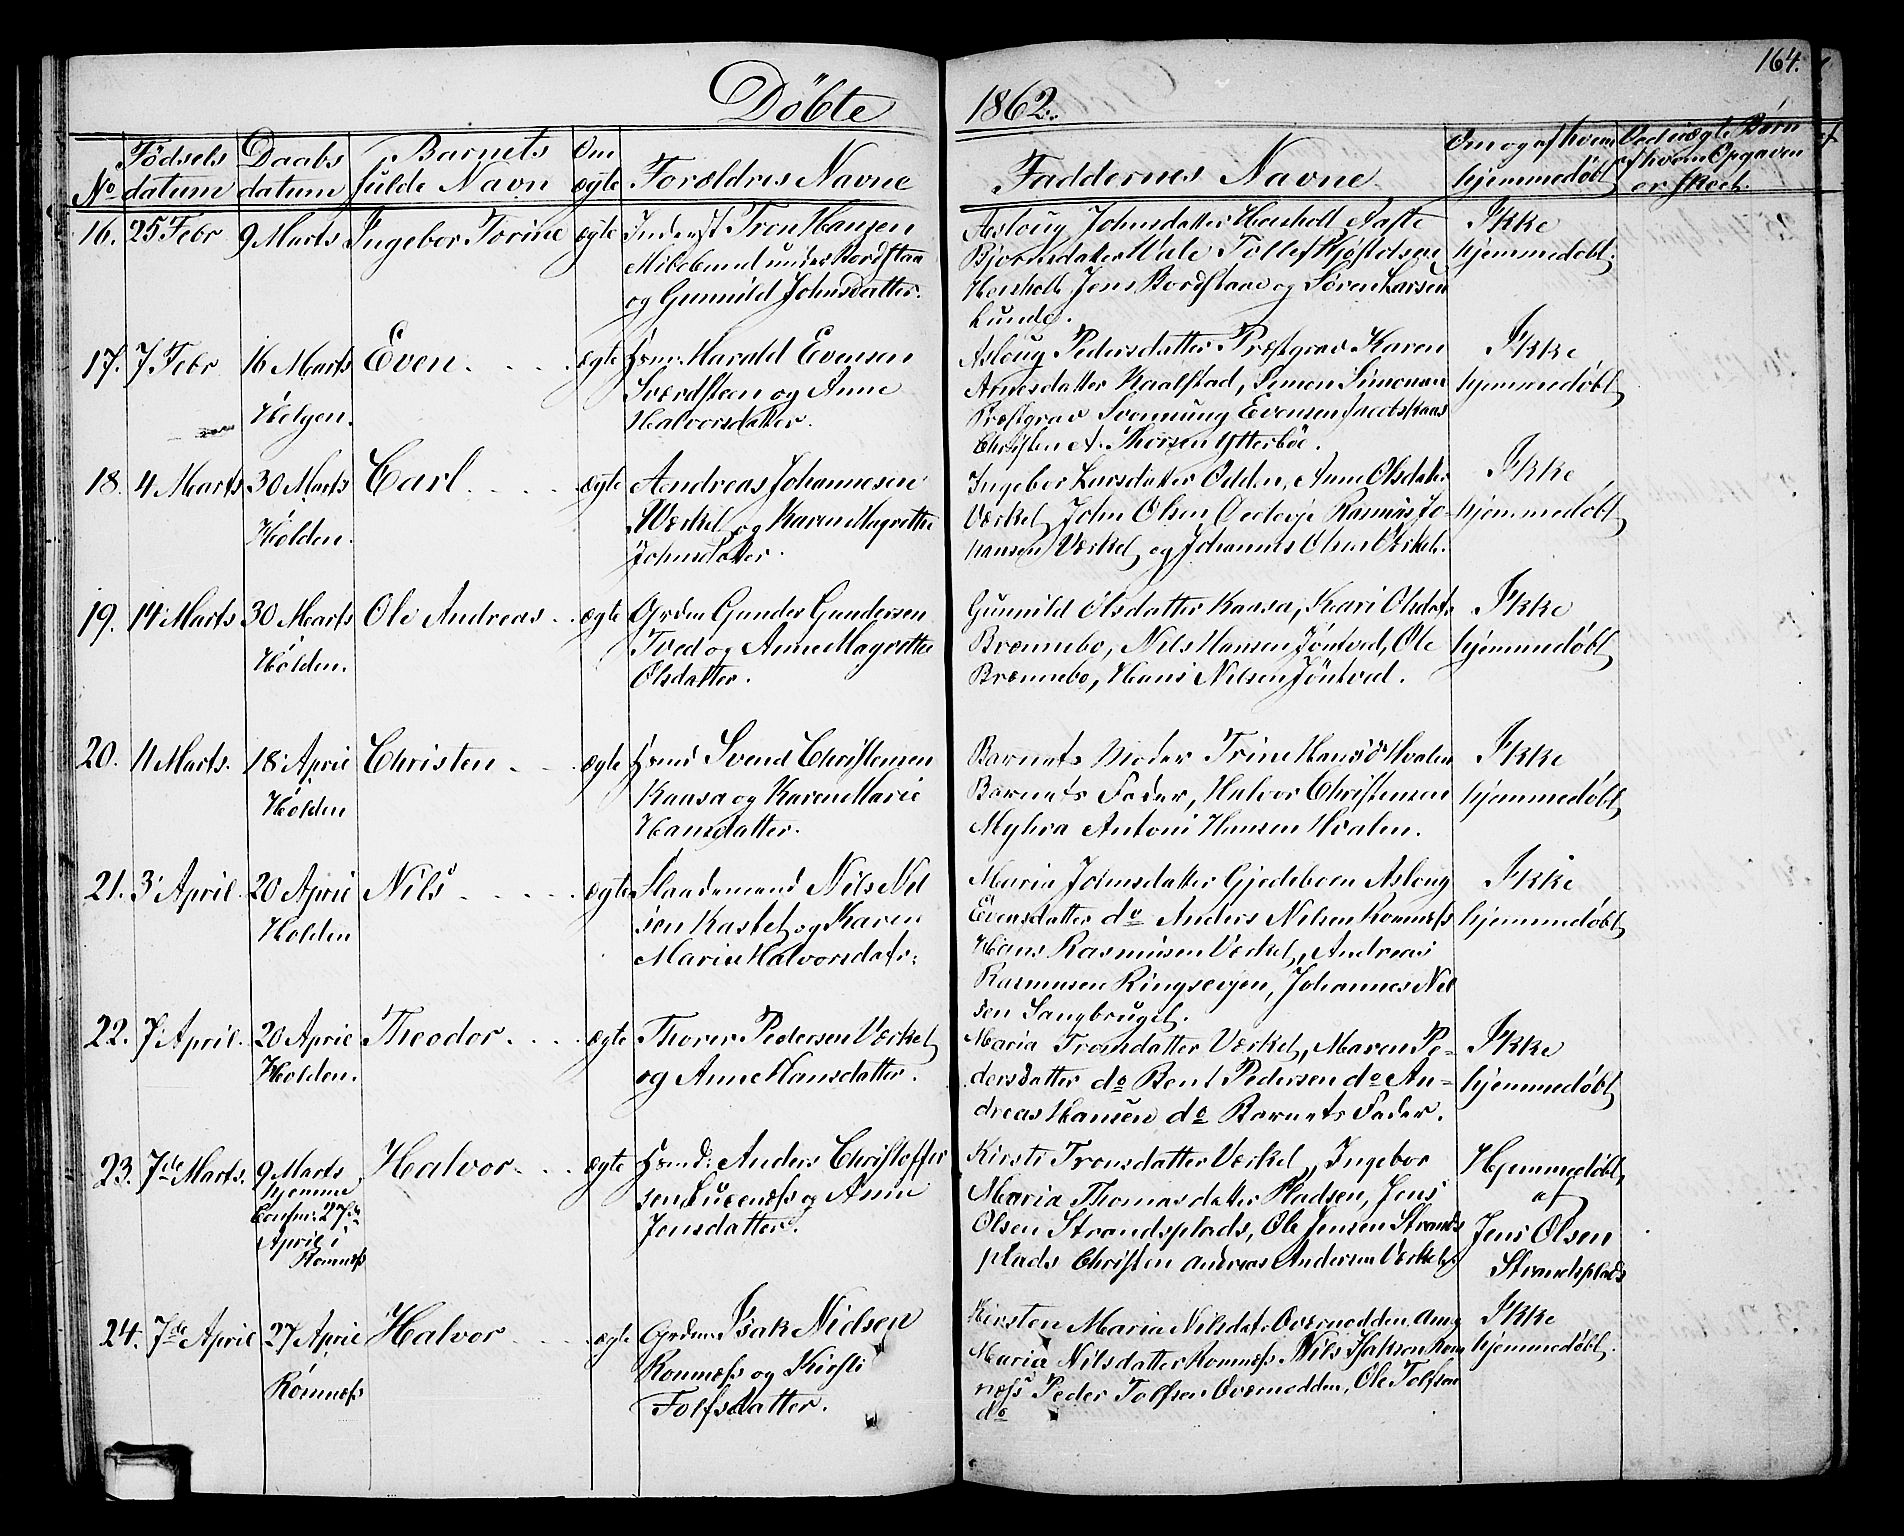 164.
Döbte 1862.
No
Födsels datum
Daabs datum
Barnets fulde Navn
Om ægte
Forældres Navne
Faddernes Navne
Om og af hvem hjemmedöbt
Ved uægte Börn af hvem Opgaven er skeet.
16. 25 Febr 9 Marts Ingebor Torine ægte
Inderst Tron Hansen
under Bordstaa
og Gunnild Johnsdatter.
Asloug Johnsdatter Hersholt, Aaste
Bjornsdatter Vale Tollef Kjöstelsen
Hersholt Jens Bordstaae og Sören Larsen
Lunde.
Ikke
hjemmedöbt.
17. 7 Febr 16 Marts Even. ægte
Hölgen.
Hsm: Harald Evensen
Sværdsteen og Anne
Halvorsdatter.
Asloug Pedersdatter Præstgrav Karen
Arnesdatter Kaalstad, Simon Simonsen
Præstgrav Svennung Evensen Jacobskaas
Christen A. Thorsen Ytterböe.
Ikke
hjemmedöbt
18. 4 Marts 30 Marts Carl ægte
Hölden.
Andreas Johannesen
Værket og Karen Magrethe
Johnsdatter.
Ingebor Larsdatter Odden, Anne Olsdatter
Værket, John Olsen Rasmus Jo-
hansen Værket og Johannes Olsen Værket.
Ikke
hjemmedöbt
19. 14 Marts 30 Marts Ole Andreas ægte
Hölden.
Grdm Gunder Gundersen
Tved og Anne Magrethe
Olsdatter.
Gunnild Olsdatter Kaasa, Kari Olsdatr
Brennebo, Nils Hansen Jöntved, Ole
Brennebo, Hans Nilsen Jöntved.
Ikke
hjemmedöbt
20. 11 Marts. 18 April Christen ægte
Hölden
Hsmd Svend Christensen
Kaasa og Karen Marie
Hansdatter.
Barnets Moder Trine Hansdr Hvalen
Barnets Fader, Halvor Christensen
Myhra Antoni Hansen Hvalen.
Ikke
hjemmedöbt
21. 3 April. 20 April Nils ægte
Holden
Standsmand Nils Nil
sen Kastet og Karen
Maria Halvorsdatr:
Maria Johnsdatter Gjedeboen Asloug
Evensdatter do Anders Nilsen Romnæss
Hans Rasmusen Værket, Andreas
Rasmusen Ringsvejen, Johannes Nil
sen Sangbruget.
Ikke
hjemmedöbt
22. 7 April. 20 April Theodor ægte
Holden.
Thorer Pedersen Værket
og Anne Hansdatter.
Maria Tronsdatter Værket, Maren Pe-
dersdatter do Bent Pedersen do An-
dreas Hansen do Barnets Fader.
Ikke
hjemmedöbt
23. 7de Marts. 9 Marts Halvor ægte
hjemme
Confm: 27de
April i
Römnæss
Hsmd: Anders Christoffer
sen Lucenæss og Anne
Jensdatter.
Kirsti Tronsdatter Værket, Ingebor
Maria Thomasdatter Pladsen, Jens
Olsen Strandsplads, Ole Jensen Strands
plads Christen Andreas Andersen Værket
Hjemmedöbt
af
Jens Olsen
Strandsplads
24. 7de April 27 April Halvor ægte
Römnæss
Grdm: Isak Nielsen
Romnæss og Kirsti
Tolfsdatter.
Kirsten Maria Nilsdatr Overnodden,
Maria Nilsdatter Romnæss Nils Isaksen Rom
næss Peder Tolfsen Overnodden, Ole Tolfsen
do
Ikke
hjemmedöbt.